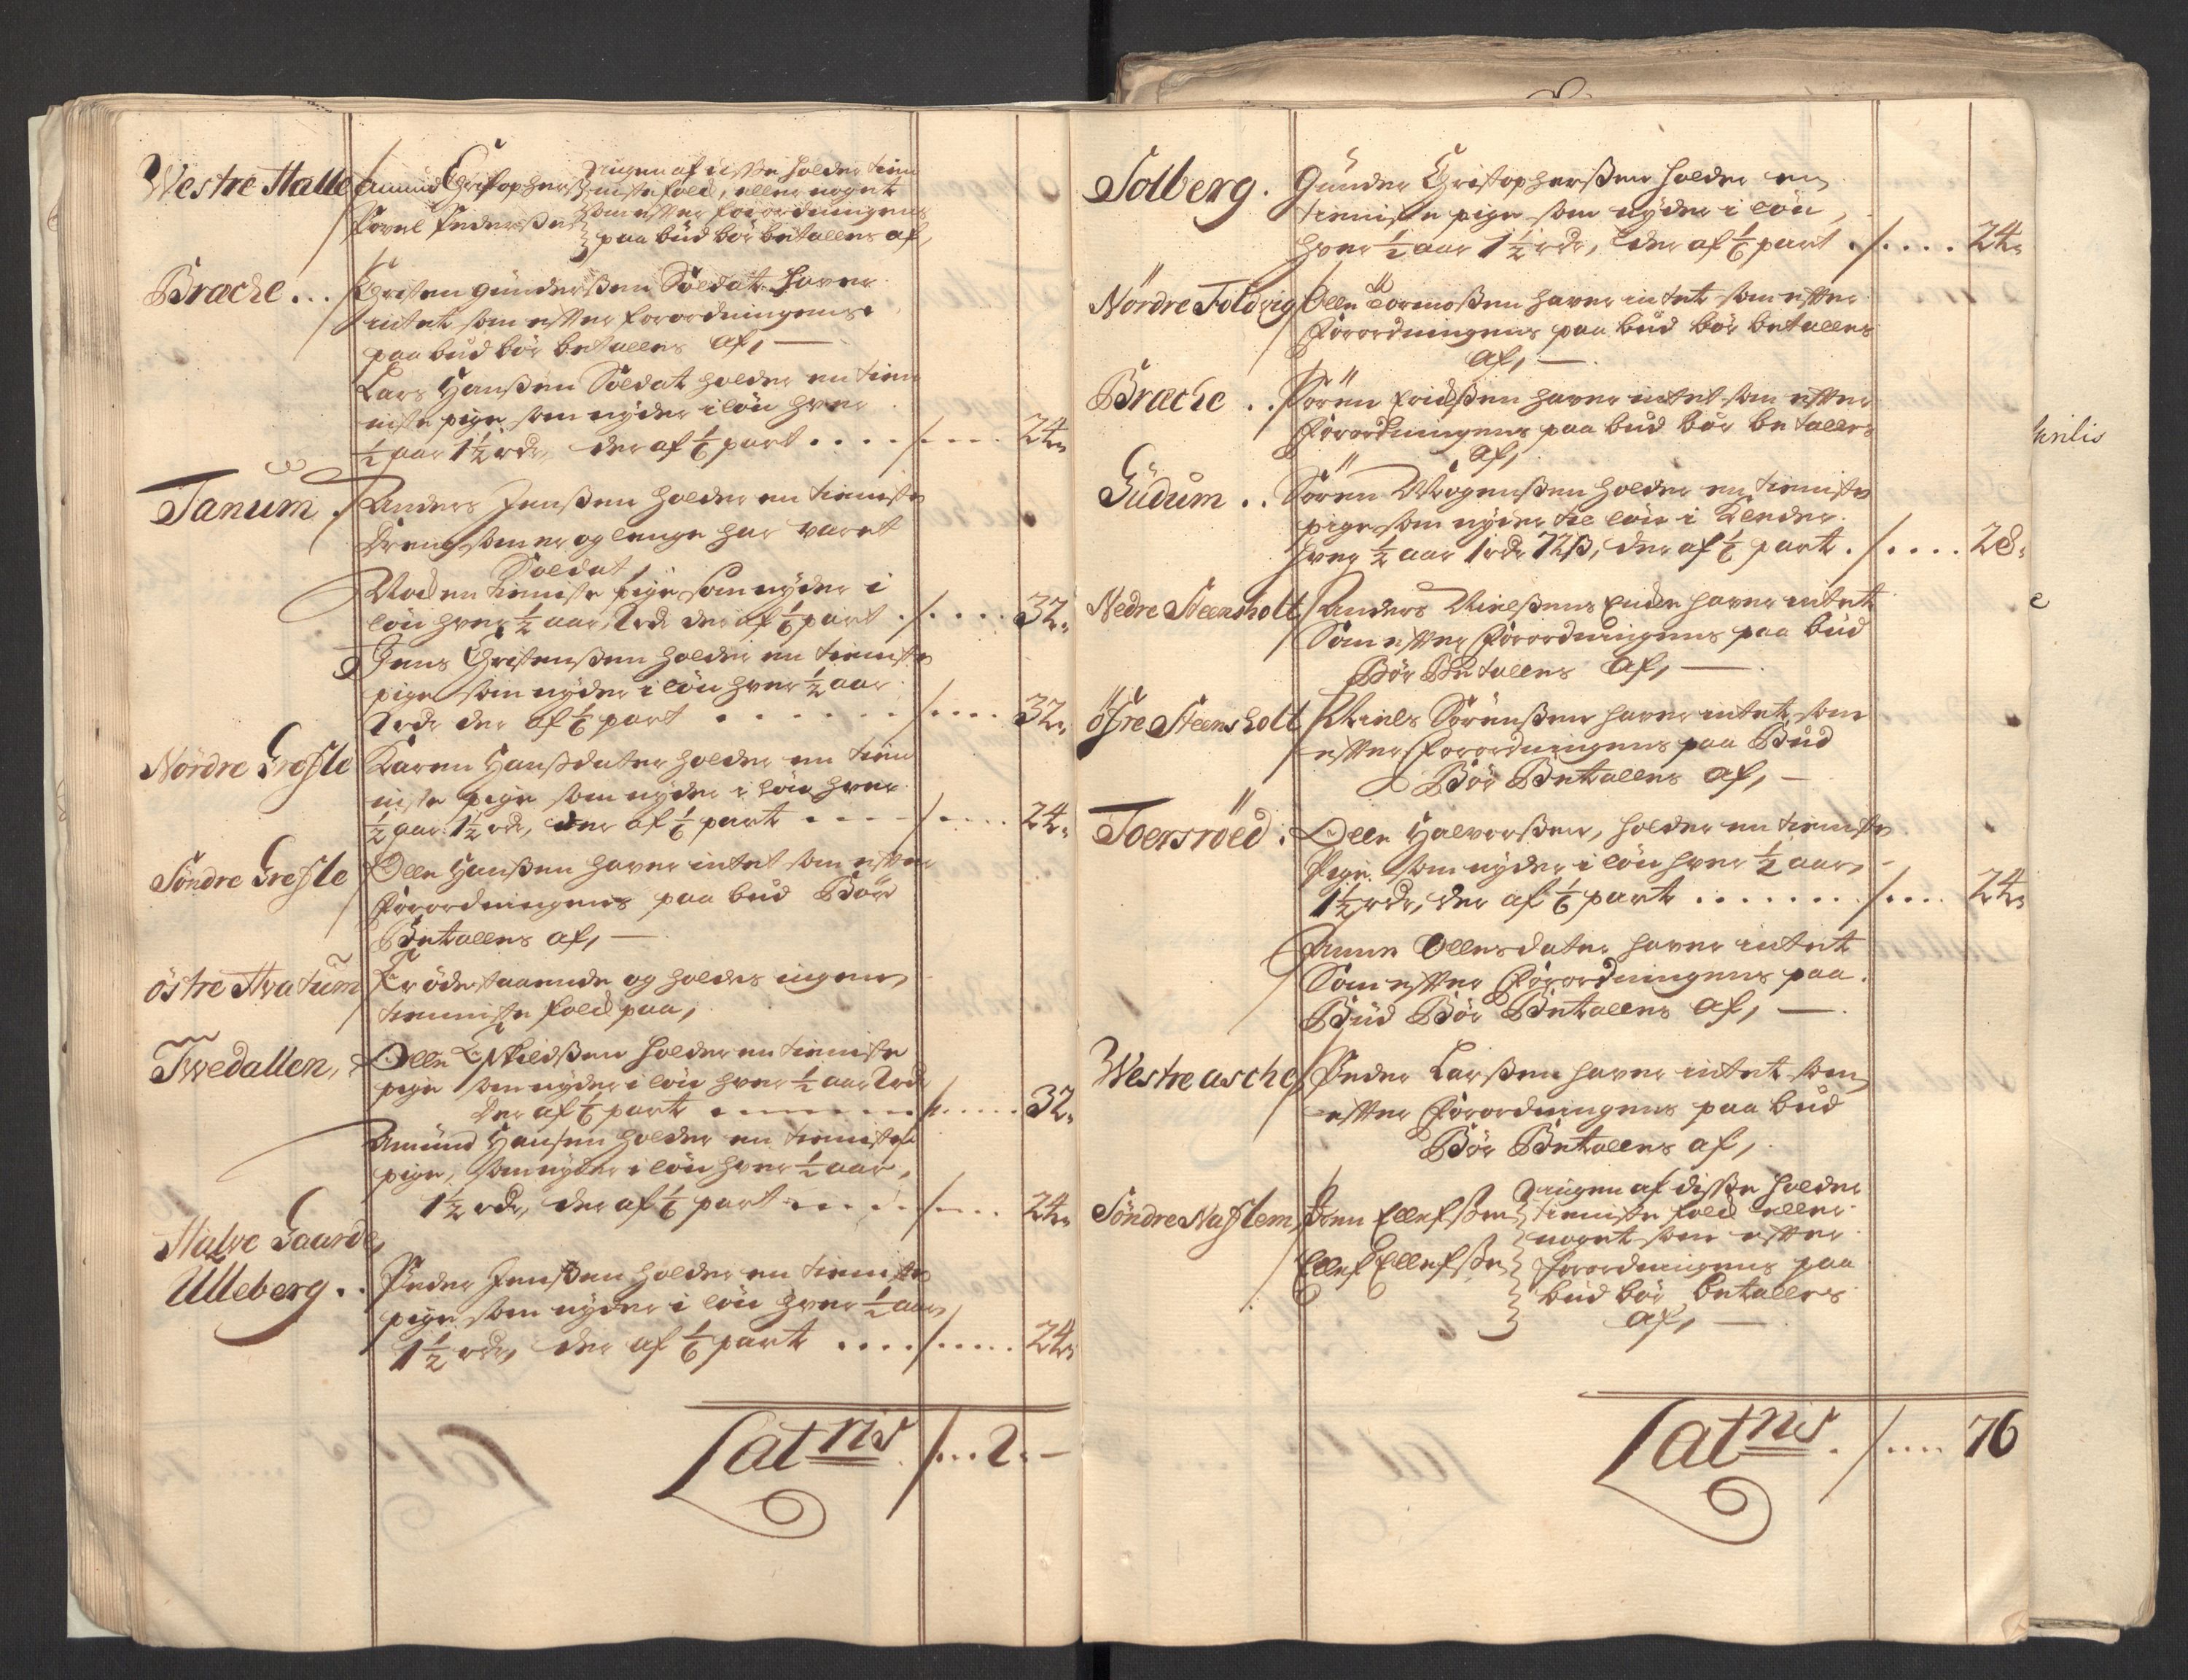 Westre Halle Amund Christophers. Ingen af disse holder tien
Povel Pederssen niste folck, eller noget
som efter forordningens
paa bud bør betalles af,
Bræche... Christen Gunderssen Soldat hafver
intet som efter forordningens
paa bud bør betalles af, —
Lars Hanssen Soldat holder en tien
niste pige som nyder i løn hver
½ aar 1½ rdr, der af ⅙ part . . . . /. . . . 24.
Tanum. Anders Jenssen holder en tieniste
Dreng som er og lenge har været
Soldat,
Noch en tieniste pige som nyder i
løn hver ½ aar, 2 rdr der af ⅙ part . /. . . . 32.
Jens Christenssen holder en tieniste
pige som nyder i løn hver ½ aar
2 rdr der af ⅙ part . . . . . . /. . . . 32.
Nordre Grefsle Karen Hanssdatter holder en tien
niste pige som nyder i løn hver
½ aar 1½ rdr, der af ⅙ part . . . . /. . . . 24.
Søndre Grefsle Olle Hanssen hafver intet som efter
forordningens paa bud Bør
Betalles af, —
østre Hvatum Er øde staaende og holdes ingen
tienniste folck paa,
Twedallen, Olle Eskeldssen holder en tieniste
pige som nyder i løn hver ½ aar 2 rdr
der af ⅙ part . . . . . . /. . . . 32.
Amund Hansen holder en tieniste
pige, som nyder i løn hver ½ aar,
1½ rdr, der af ⅙ part . . . . /. . . . 24.
Halve Gaarde,
Ulleberg.. Peder Jenssen holder en tieniste
pige som nyder i løn hver ½ aar,
1½ rdr, der af ⅙ part . . . . /. . . . . 24.
Latris. /... 2. —
Solberg. Gunder Christopherssen holder en
tieniste pige som nyder i løn,
hver ½ aar 1½ rdr, der af ⅙ part . /. . . . 24.
Nordre Foldvig Olle Tormossen hafver intet som efter
forordningens paa bud bør betalles
af, —
Bræche.. Søren hafver intet som efter
forordningens paa bud bør betalles
af,
Gudum.. Søren Mogenssen holder en tieniste
pige som nyder til løn i Kleder
hver ½ aar 1 rdr 72 ß, der af ⅙ part . /. . . . 28.
Nedre Steensholt Anders Nielssens Encke hafver intet
Som efter forordningens paa bud
Bør Betalles af, —
østre Steensholt Niels Sørenssen hafver intet som
efter forordningens paa Bud
Bør Betalles af, —
Toersrøed. Olle Halvorssen, holder en tieniste
Pige som nyder i løn hver ½ aar,
1½ rdr, der af ⅙ part . . . . . . . . /. . . . 24.
Anne Ollesdatter hafver intet
Som efter forordningens paa
Bud Bør Betalles af, —
Westre asche Peder Larssen hafver intet som
efter forordningens paa bud
Bør Betalles af,
Søndre Nafslem Ellefssen Ingen af disse holder
tieniste folck eller
noget som efter
Ellef Ellefssen forordningens paa
bud bør betalles
af, —
Latris. /.... 76